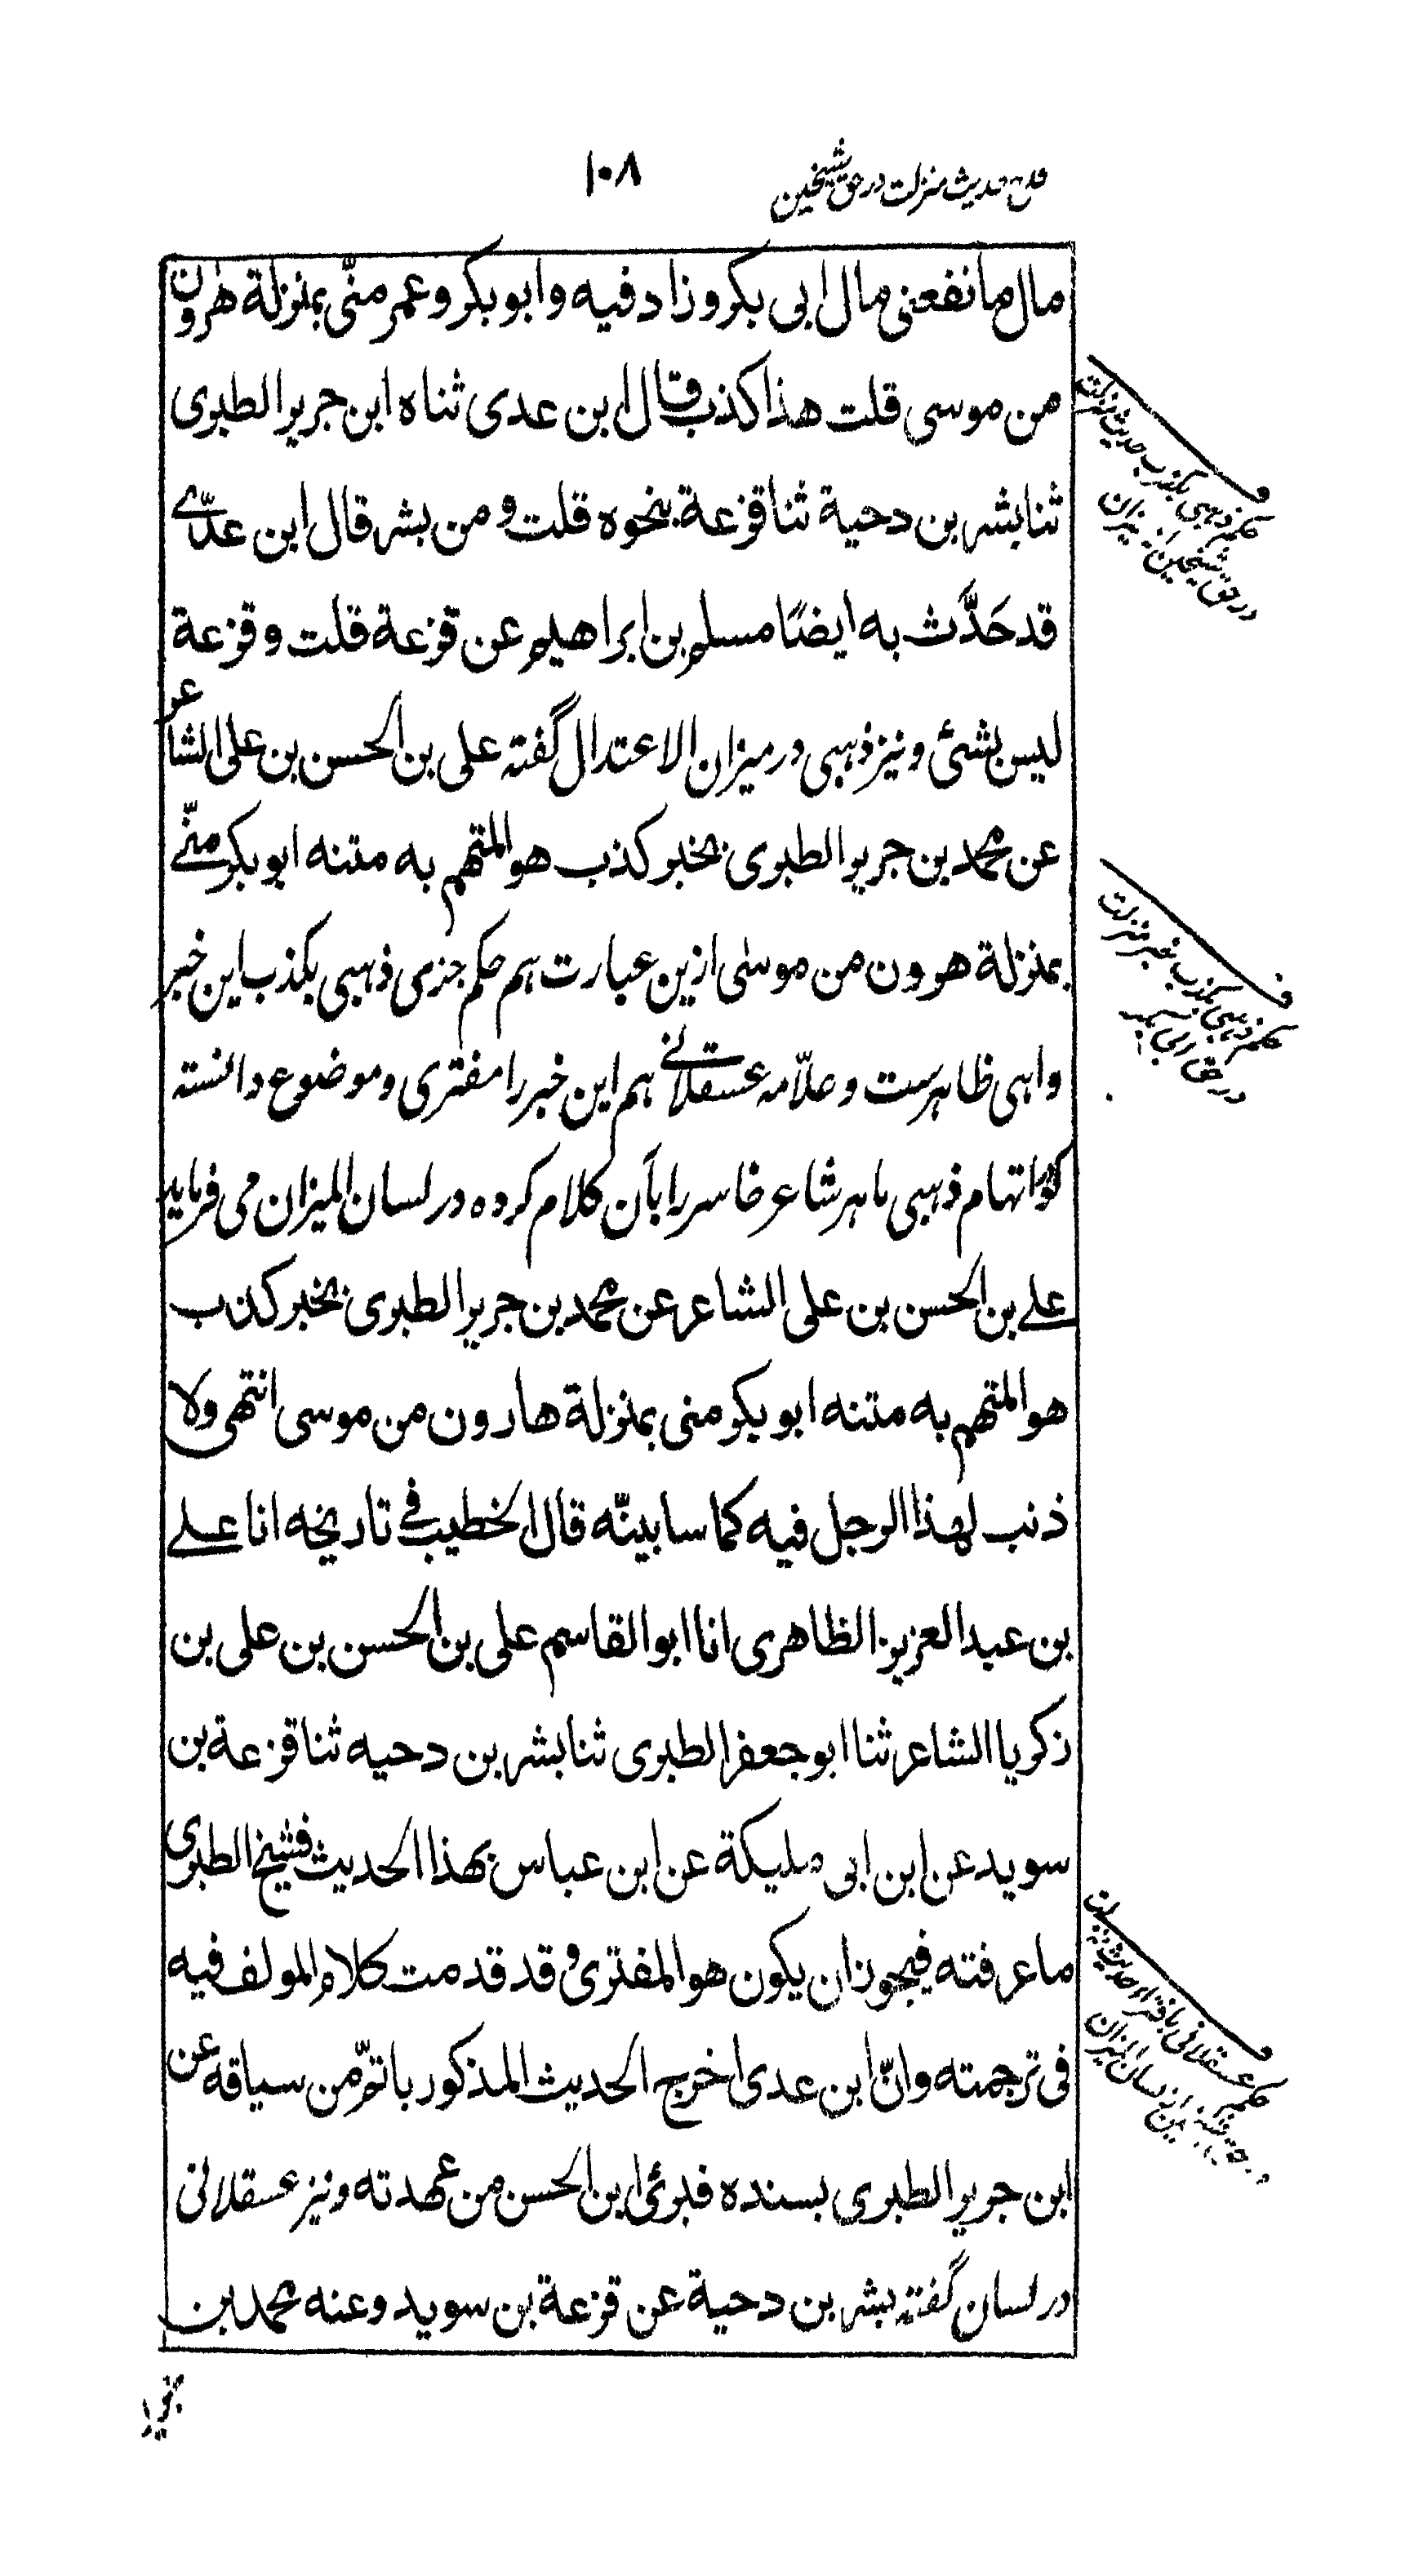 قدح حدیث منزلت در حق شیخین
۱۰۸
مال ما نفعنی مال ابی بکر و زاد فیه و ابو بکر و عمر منّی بمنزلة هٰرون
من موسی قلت هذا کذب قال ابن عدی ثناه ابن جریر الطبری
ثنا بشر بن دحیة ثنا قزعة بنحوه قلت و من بشر قال ابن عدّی
قد حَدَّث به ایضًا مسلم بن ابراهیم عن قزعة قلت و قزعة
لیس بشئ و نیز ذهبی در میزان الاعتدال گفته علی بن الحسن بن علی الشاعر
عن محمد بن جریر الطبری بخبر کذب هو المتهم به متنه ابو بکر منّی
بمنزلة هرون من موسٰی ازین عبارت هم حکم جزمی ذهبی بکذب این خبر
واهی ظاهرست و علّامه عسقلانی هم این خبر را مفتری و موضوع دانسته
گو در اتهام ذهبی ماهر شاعر خاسر را بآن کلام کرده در لسان المیزان می فرماید
علی بن الحسن بن علی الشاعر عن محمد بن جریر الطبری بخبر کذب
هو المتهم به متنه ابو بکر منی بمنزلة هارون من موسی انتهی ولا
ذنب لهذا الرجل فیه کما سابینّه قال الخطیب فی تاریخه انا علی
بن عبد العزیز الظاهری انا ابو القاسم علی بن الحسن بن علی بن
زکریا الشاعر ثنا ابو جعفر الطبری ثنا بشر بن دحیه ثنا قزعة بن
سوید عن ابن ابی ملیکة عن ابن عباس بهذا الحدیث فشیخ الطبری
ما عرفته فیجوز ان یکون هو المفتری و قد قدمت کلام المولف فیه
فی ترجمته و انّ ابن عدی اخرج الحدیث المذکور باتمّ من سیاقه عن
ابن جریر الطبری بسنده فبرئ ابن الحسن من عهدته و نیز عسقلانی
در لسان گفته بشر بن دحیة عن قزعة بن سوید و عنه محمد بن
حکم ذهبی بکذب حدیث منزلت
در حق شیخین از میزان
حکم ذهبی بکذب خبر منزلت
در حق ابی بکر
حکم عسقلانی بافتراء حدیث منزلت
در حق شیخین از لسان المیزان
جریر